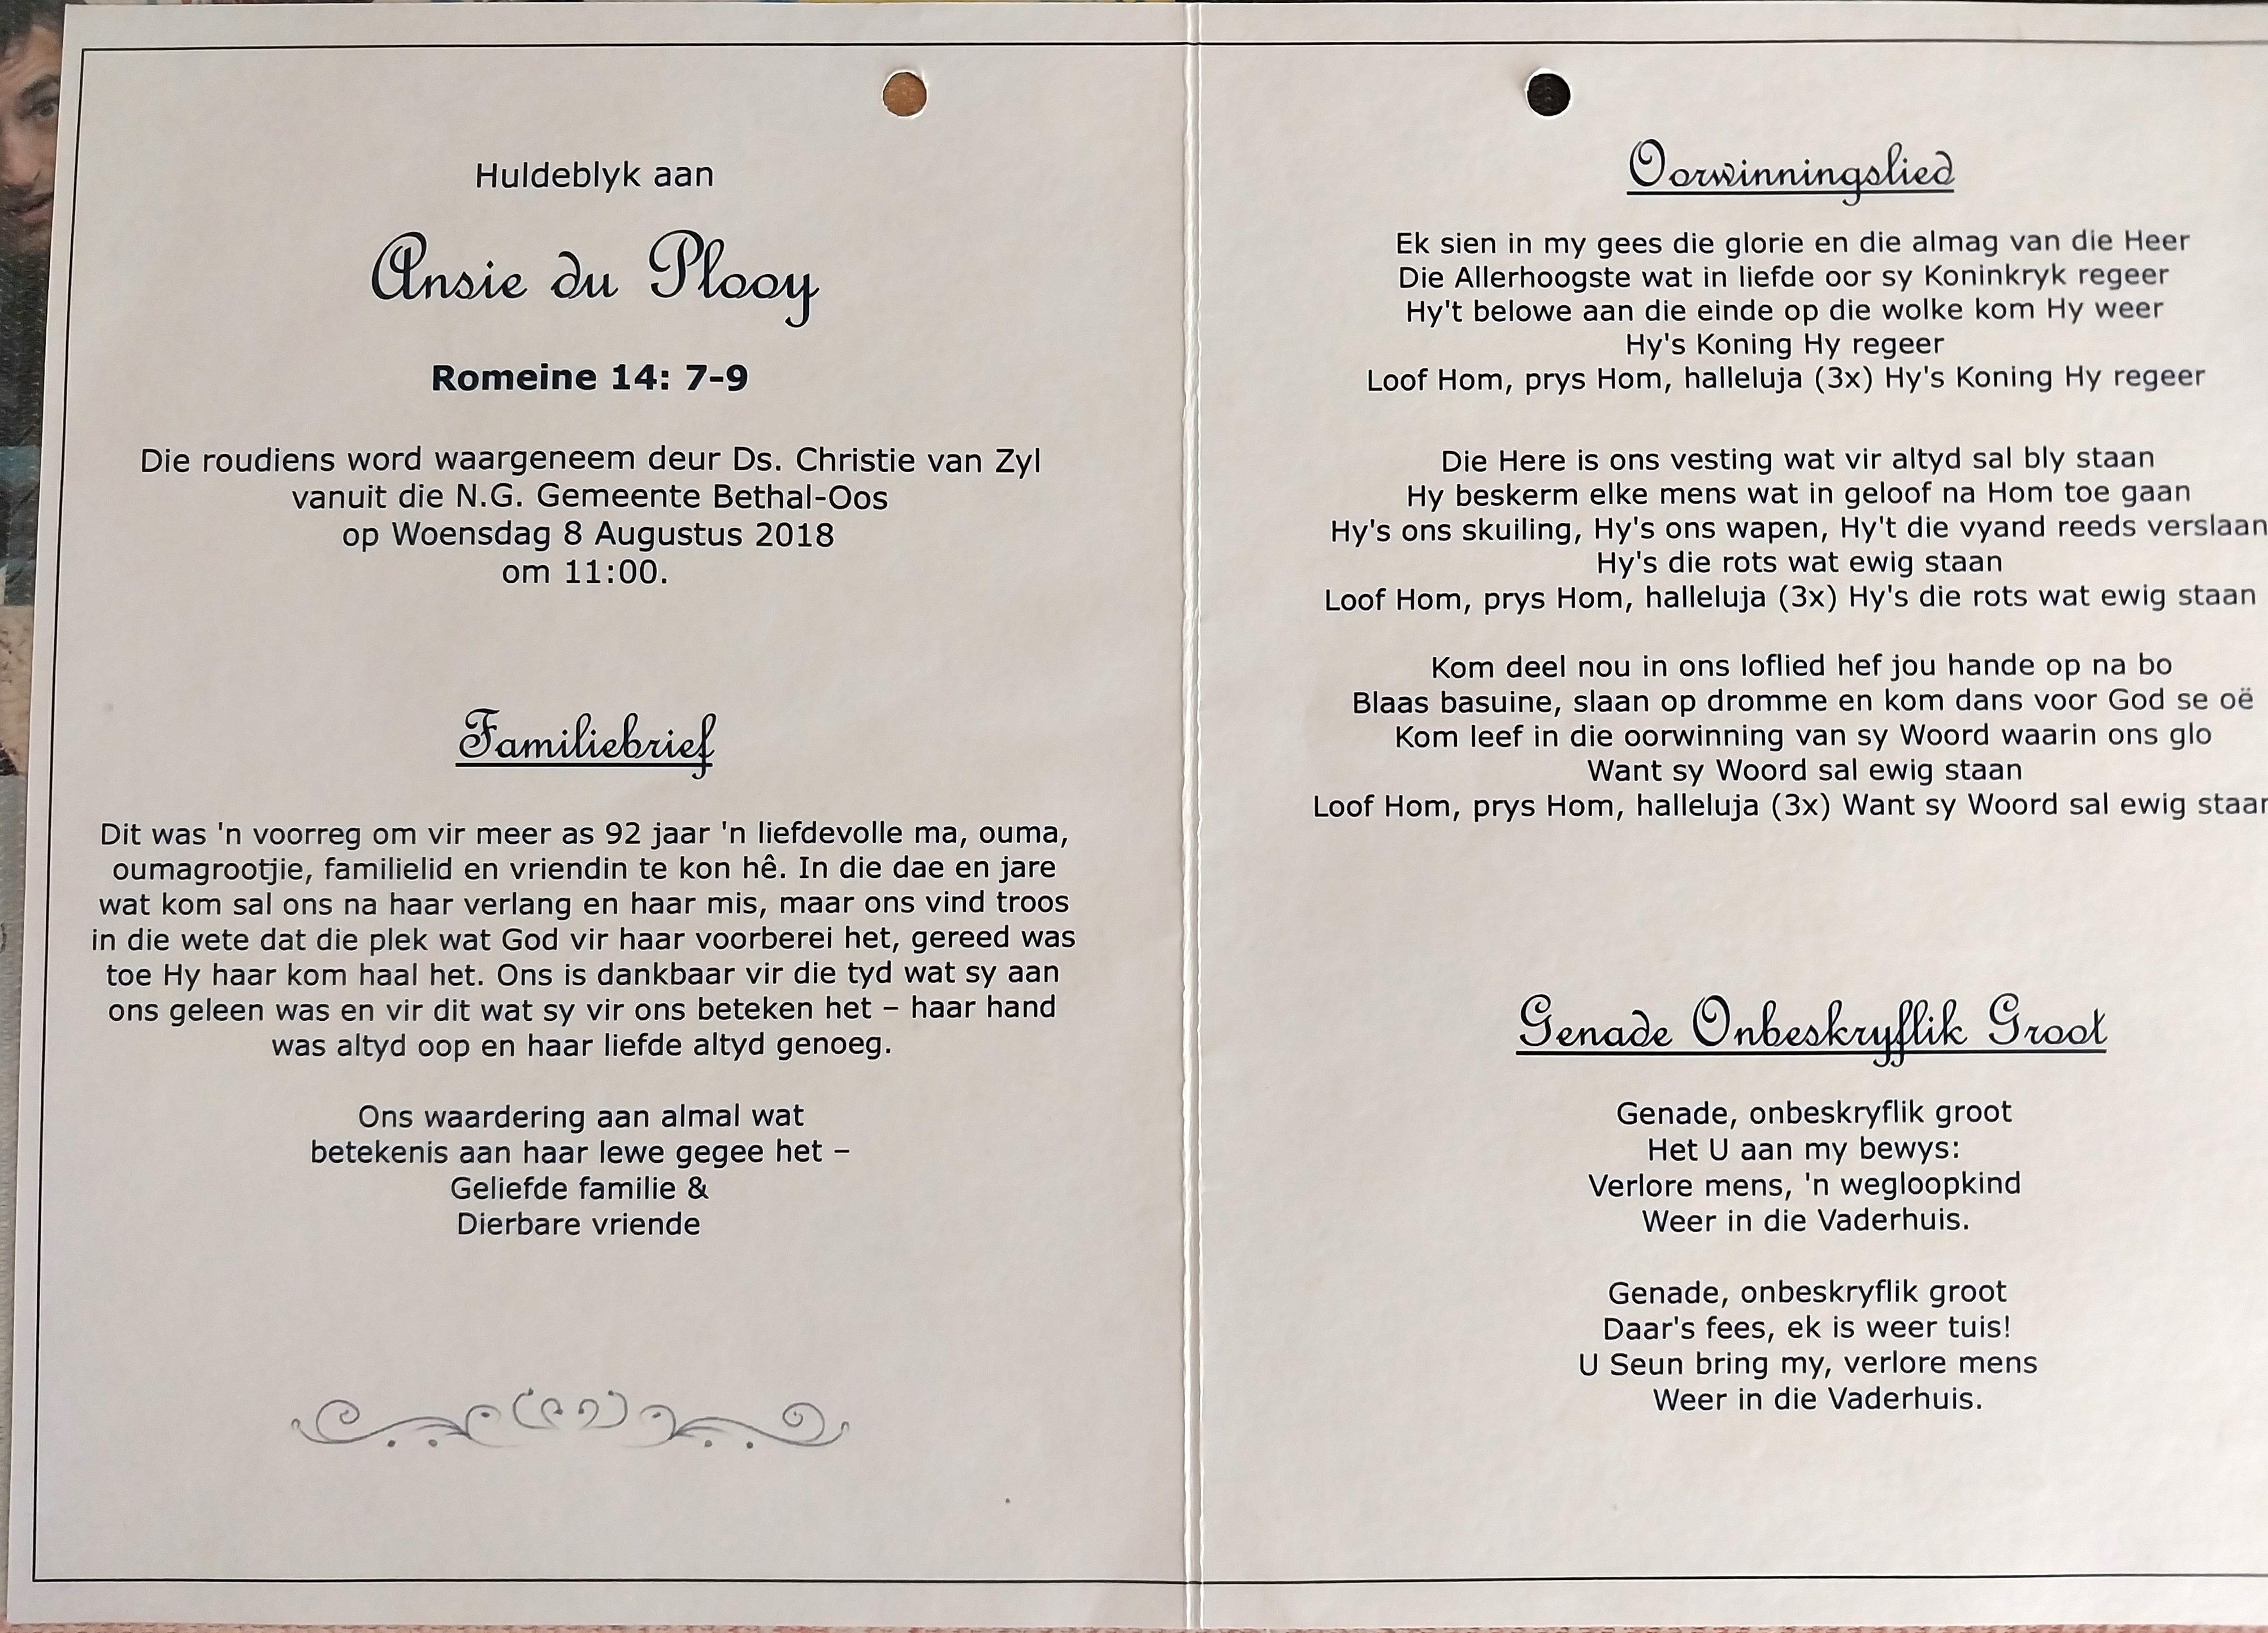 Huldeblyk aan
Ansie du Plooy
Romeine 14: 7-9
Die roudiens word waargeneem deur Ds. Christie van Zyl
vanuit die N.G. Gemeente Bethal-Oos
op Woensdag 8 Augustus 2018
om 11:00.
Familiebrief
Dit was 'n voorreg om vir meer as 92 jaar 'n liefdevolle ma, ouma,
oumagrootjie, familielid en vriendin te kon hê. In die dae en jare
wat kom sal ons na haar verlang en haar mis, maar ons vind troos
in die wete dat die plek wat God vir haar voorberei het, gereed was
toe Hy haar kom haal het. Ons is dankbaar vir die tyd wat sy aan
ons geleen was en vir dit wat sy vir ons beteken het – haar hand
was altyd oop en haar liefde altyd genoeg.
Ons waardering aan almal wat
betekenis aan haar lewe gegee het –
Geliefde familie &
Dierbare vriende
Oorwinningslied
Ek sien in my gees die glorie en die almag van die Heer
Die Allerhoogste wat in liefde oor sy Koninkryk regeer
Hy't belowe aan die einde op die wolke kom Hy weer
Hy's Koning Hy regeer
Loof Hom, prys Hom, halleluja (3x) Hy's Koning Hy regeer
Die Here is ons vesting wat vir altyd sal bly staan
Hy beskerm elke mens wat in geloof na Hom toe gaan
Hy's ons skuiling, Hy's ons wapen, Hy't die vyand reeds verslaan
Hy's die rots wat ewig staan
Loof Hom, prys Hom, halleluja (3x) Hy's die rots wat ewig staan
Kom deel nou in ons loflied hef jou hande op na bo
Blaas basuine, slaan op dromme en kom dans voor God se oë
Kom leef in die oorwinning van sy Woord waarin ons glo
Want sy Woord sal ewig staan
Loof Hom, prys Hom, halleluja (3x) Want sy Woord sal ewig staan
Genade Onbeskryflik Groot
Genade, onbeskryflik groot
Het U aan my bewys:
Verlore mens, 'n wegloopkind
Weer in die Vaderhuis.
Genade, onbeskryflik groot
Daar's fees, ek is weer tuis!
U Seun bring my, verlore mens
Weer in die Vaderhuis.